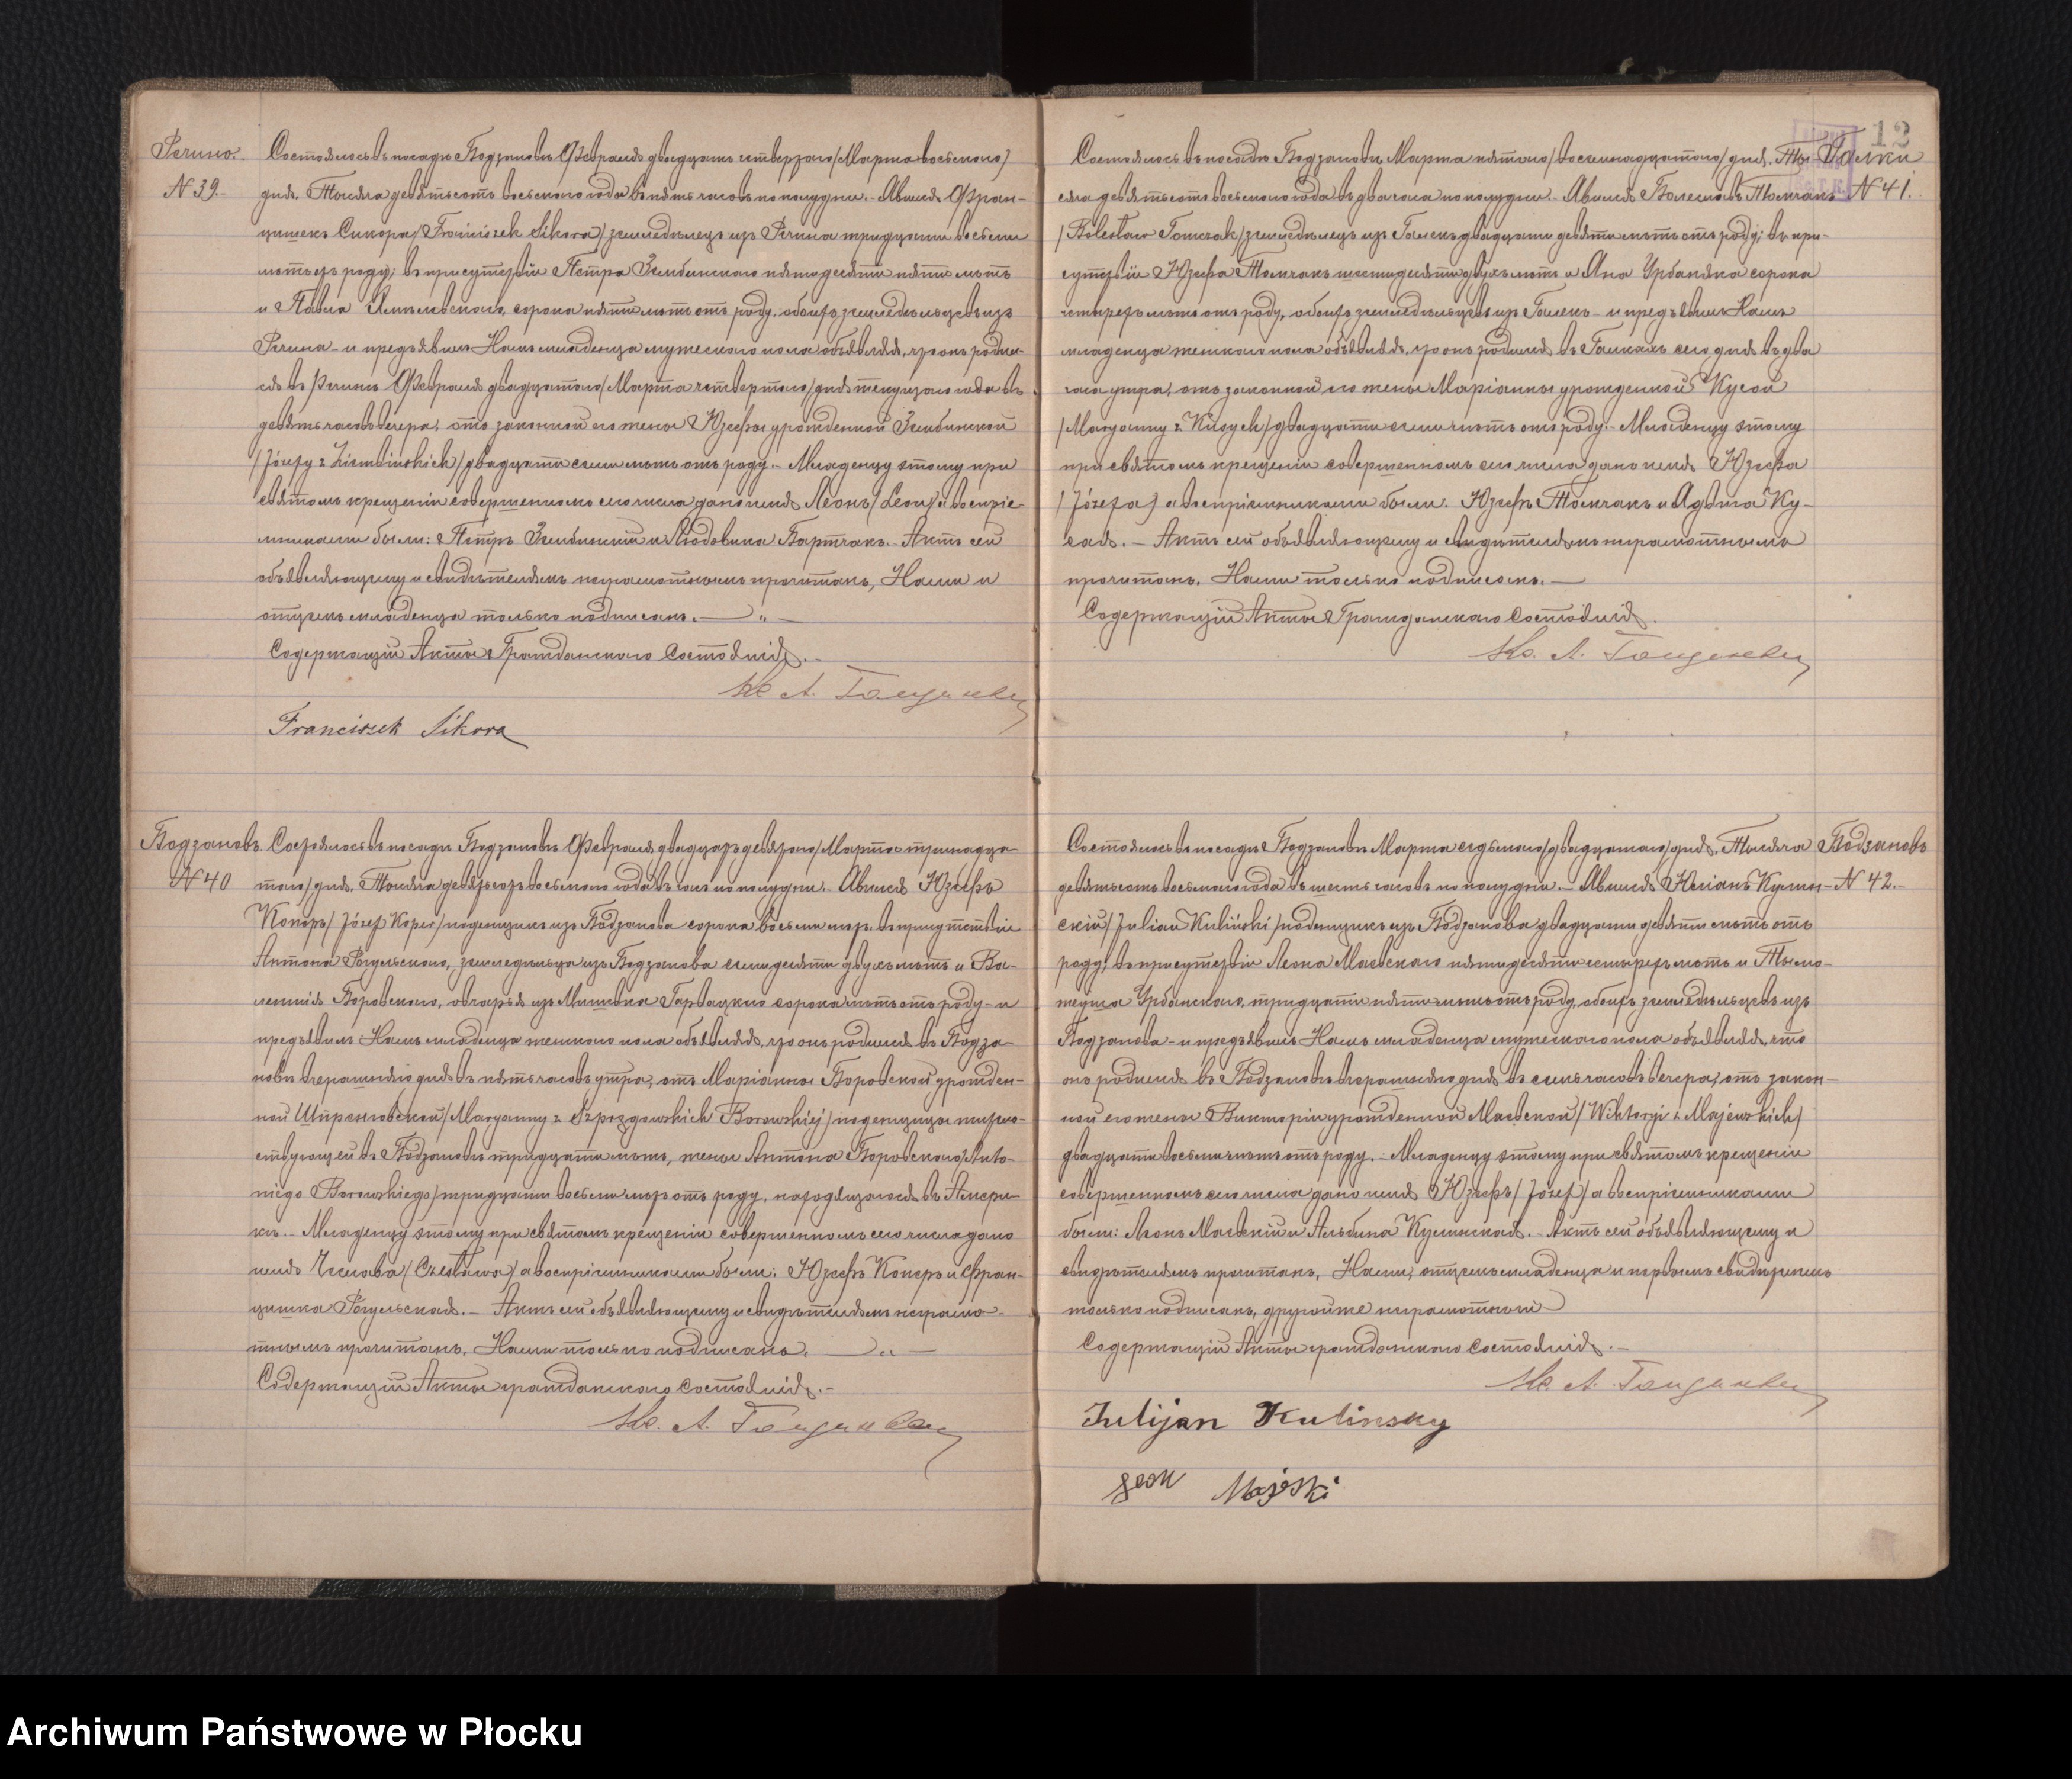 Регино.
N 39.
Состоялось въ посадѣ Бодзановѣ Февраля двадцать четвертаго /Марта восьмого/
дня, Тысяча девятьсотъ восьмого года въ пять часовъ по полудни. Явился Фран-
цишекъ Сикора /Franciszek Sikora/ земледѣлецъ изъ Регина тридцати восьми
лѣтъ отъ роду; въ присутствіи Петра Зембинскаго пятидесяти пяти лѣтъ
и Павла сорока пяти лѣтъ отъ роду, обоихъ земледѣльцевъ изъ
Регина - и предъявилъ Намъ младенца мужескаго пола объявляя, что онъ родил-
ся въ Регинѣ Февраля двадцатого /Марта четвертаго/ дня текущаго года въ
девять часовъ вечера, отъ законной его жены Юзефы урожденной Зембинской
/Józefy z Ziembińskich/ двадцати семи лѣтъ отъ роду. - Младенцу этому при
святомъ крещеніи совершенномъ сего числа дано имя Леонъ /Leon/ а воспріе-
мниками были: Петръ Зембинскій и Людовика Бартчакъ. - Актъ сей
объявляющему и свидѣтелямъ неграмотнымъ прочитанъ, Нами и
отцемъ младенца только подписанъ. —
Содержащій Акты Гражданскаго Состоянія. -
Кс. А.
Franciszek Sikora
Бодзановъ
N 40
Состоялось въ посадѣ Бодзановѣ Февраля двадцать девятаго /Марта тринадца-
таго/ дня, Тысяча девятьсотъ восьмого года въ часъ по полудни. - Явился Юзефъ
Коперъ /Józef Koper/ поденщикъ изъ Бодзанова сорока восьми лѣтъ, въ присутствіи
Антона Рогульскаго, земледѣльца изъ Бодзанова семидесяти двухъ лѣтъ и Ва-
лентія Боровского, овчаря изъ Мишева Гарвацкаго сорока лѣтъ отъ роду - и
предъявилъ Намъ младенца женскаго пола объявляя, что онъ родился въ Бодза-
новѣ вчерашняго дня въ пять часовъ утра, отъ Маріанны Боровской урожден-
ной /Maryanny z Borowskiej/ поденщицы житель-
ствующей въ Бодзановѣ тридцати лѣтъ, жены Антона Боровского /Anto-
niego Borowskiego/ тридцати восьми лѣтъ отъ роду, находящагося въ Амери-
кѣ. - Младенцу этому при святомъ крещеніи совершенномъ сего числа дано
имя Чеслава /Czesława/ а воспріемниками были: Юзефъ Коперъ и Фран-
цишка Рогульская. - Актъ сей объявляющему и свидѣтелямъ неграмо-
тнымъ прочитанъ, Нами только подписанъ. —
Содержащій Акты гражданскаго Состоянія. -
Кс. А.
12
Галки
N 41.
Состоялось въ посадѣ Бодзановѣ Марта пятаго /восемнадцатаго/ дня, Ты-
сяча девятьсотъ восьмого года въ два часа по полудни. Явился Болеславъ Томчакъ
/Bolesław Tomczak/ земледѣлецъ изъ Галекъ двадцати девяти лѣтъ отъ роду; въ при-
сутствіи Юзефа Томчакъ шестидесяти двухъ лѣтъ и Яна Урбаняка сорока
четырехъ лѣтъ отъ роду, обоихъ земледѣльцевъ изъ Галекъ - и предъявилъ Намъ
младенца женскаго пола объявляя, что онъ родился въ Галкахъ сего дня въ два
часа утра, отъ законной его жены Маріанны урожденной Кусой
/Maryanny z Kusych/ двадцати семи лѣтъ отъ роду. - Младенцу этому
при святомъ крещеніи совершенномъ сего числа дано имя Юзефа
/Józefa/ а воспріемниками были: Юзефъ Томчакъ и Ядвига Ку-
сая. - Актъ сей объявляющему и свидѣтелямъ неграмотнымъ
прочитанъ, Нами только подписанъ. —
Содержащій Акты Гражданскаго Состоянія.
Кс. А.
Бодзановъ
N 42.
Состоялось въ посадѣ Бодзановѣ Марта седьмого /двадцатаго/ дня, Тысяча
девятьсотъ восьмого года въ шесть часовъ по полудни. - Явился Юліанъ Кулин-
скій /Julian Kuliński/ поденщикъ изъ Бодзанова двадцати девяти лѣтъ отъ
роду; въ присутствіи Леона Маевскаго пятидесяти четырехъ лѣтъ и Тымо-
теуша Урбанскаго, тридцати пяти лѣтъ отъ роду, обоихъ земледѣльцевъ изъ
Бодзанова - и предъявилъ Намъ младенца мужескаго пола объявляя, что
онъ родился въ Бодзановѣ вчерашняго дня въ семь часовъ вечера, отъ закон-
ной его жены Викторіи урожденной Маевской /Wiktoryi z Majewskich/
двадцати восьми лѣтъ отъ роду. - Младенцу этому при святомъ крещеніи
совершенномъ сего числа дано имя Юзефъ /Józef/ а воспріемниками
были: Леонъ Маевскій и Альбина Кулинская. - Актъ сей объявляющему и
свидѣтелямъ прочитанъ, Нами, отцемъ младенца и первымъ свидѣтелемъ
только подписанъ, другой же неграмотный —
Содержащій Акты гражданскаго Состоянія. -
Кс. А.
Julijan Kulinsky
Leon Majeski
Archiwum Państwowe w Płocku